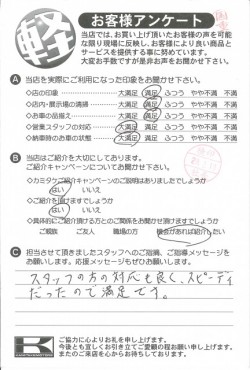 軽
お客様アンケート
当店では、お買い上げ頂いたお客様の声を可能
な限り現場に反映し、お客様により良い商品と
サービスを提供する事に努めています。
大変お手数ですが是非お声をお聞かせ下さい。
A 当店を実際にご利用になった印象をお聞かせ下さい。
◇店の印象 大満足 満足 ふつう やや不満 不満
◇店内・展示場の清掃 大満足 満足 ふつう やや不満 不満
◇お車の品揃え 大満足 満足 ふつう やや不満 不満
◇営業スタッフの対応 大満足 満足 ふつう やや不満 不満
◇納車時のお車の状態 大満足 満足 ふつう やや不満 不満
B 当店はご紹介を大切にしてあります。
ご紹介キャンペーンについてお聞かせ下さい。
◇カミタケご紹介キャンペーンのご説明はありましたでしょうか
はい いいえ
◇ご紹介を頂けますでしょうか
はい いいえ
◇具体的にご紹介頂ける方とのご関係をお聞かせ頂けますでしょうか
ご親族 ご友人 職場の方 機会があれば紹介したい
C 担当させて頂きましたスタッフへのご指摘、ご指導メッセージを
お願いします。応援メッセージもぜひお願いします。
スタッフの方の対応も良く、スピーディ
だったので満足です。
K
ご協力に心よりお礼を申し上げます。
今後とも宜しくお引き立てご愛顧の程お願い申し上げます。
またのご来店を心からお待ちしております。